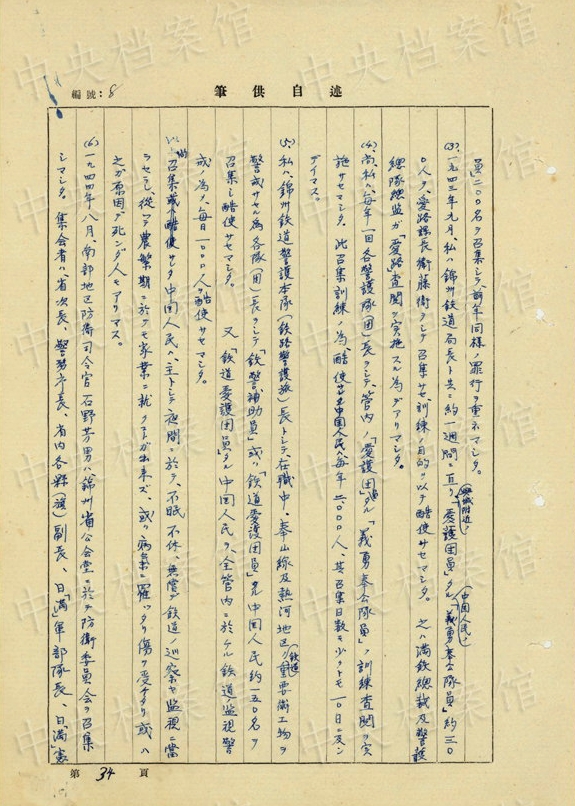 編號：8
筆供自述
員二〇〇名ヲ召集シテ、前年同様ノ罪行ヲ重ネマシタ。
(3)、一九四三年九月、私ハ錦州鉄道局長ト共ニ約一週間ニ亘リ(興城附近ノ)「愛護団員」タル(中国人民ノ)「義勇奉公隊員」約三〇
〇人ヲ、愛路課長衛藤衛ヲシテ召集サセ、訓練ノ目的ヲ以テ酷使サセマシタ。之ハ満鉄総裁及警護
総隊総監ガ「愛路」査閲ヲ実施スル為デアリマシタ。
(4)、尚、私ハ毎年一回各警護隊(団)長ヲシテ、管内ノ「愛護団」員タル「義勇奉公隊員」ノ訓練査閲ヲ実
施サセマシタ。此召集訓練ノ為、酷使サセタ中国人民ハ毎年二〇〇〇人、其召集日数モ少クトモ一〇日ニ及ン
デイマス。
(5)、私ハ錦州鉄道警護本隊(鉄路警護旅)長トシテ在職中、奉山線及熱河地区ノ鉄道重要術工物ヲ
警戒サセル為、各隊(団)長ヲシテ「鉄警補助員」或ハ「鉄道愛護団員」タル中国人民約一五〇名ヲ
召集シ酷使サセマシタ。又「鉄道愛護団員」タル中国人民ヲ、全管内ニ於ケル鉄道ノ監視警
戒ノ為ヲ、毎日一〇〇〇人ヲ酷使サセマシタ。
召集或ハ酷使サレタ中国人民ハ、主トシテ夜間ニ於テ、不眠不休、無償デ鉄道ノ巡察ヤ監視ニ當
ラセラレ、従ツテ農繁期ニ於テモ家業ニ就クコトガ出来ズ、或ハ病氣ニ罹ツタリ傷ヲ受ケタリ或ハ
之ガ原因デ死ンダ人モアリマス。
(6)一九四四年八月、南部地区防衛司令官石野芳男ハ、錦州省公会堂ニ於テ防衛委員会ヲ召集
シマシタ。集会者ハ、省次長、警務庁長、省内各縣(旗)副長、日「満」軍部隊長、日「満」憲
第34頁
中央档案馆